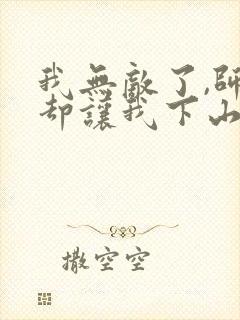 我無敵了,師
却讓我下山
撒空空